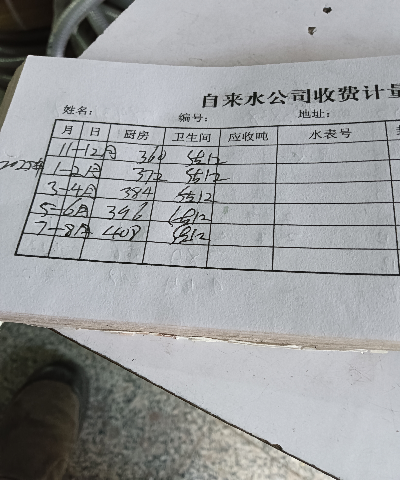 自来水公司收费计量
姓名: 编号: 地址:
月 日 厨房 卫生间 应收吨 水表号
11-12月 360
2025年 1-2月 372
3-4月 384
5-6月 396
7-8月 408